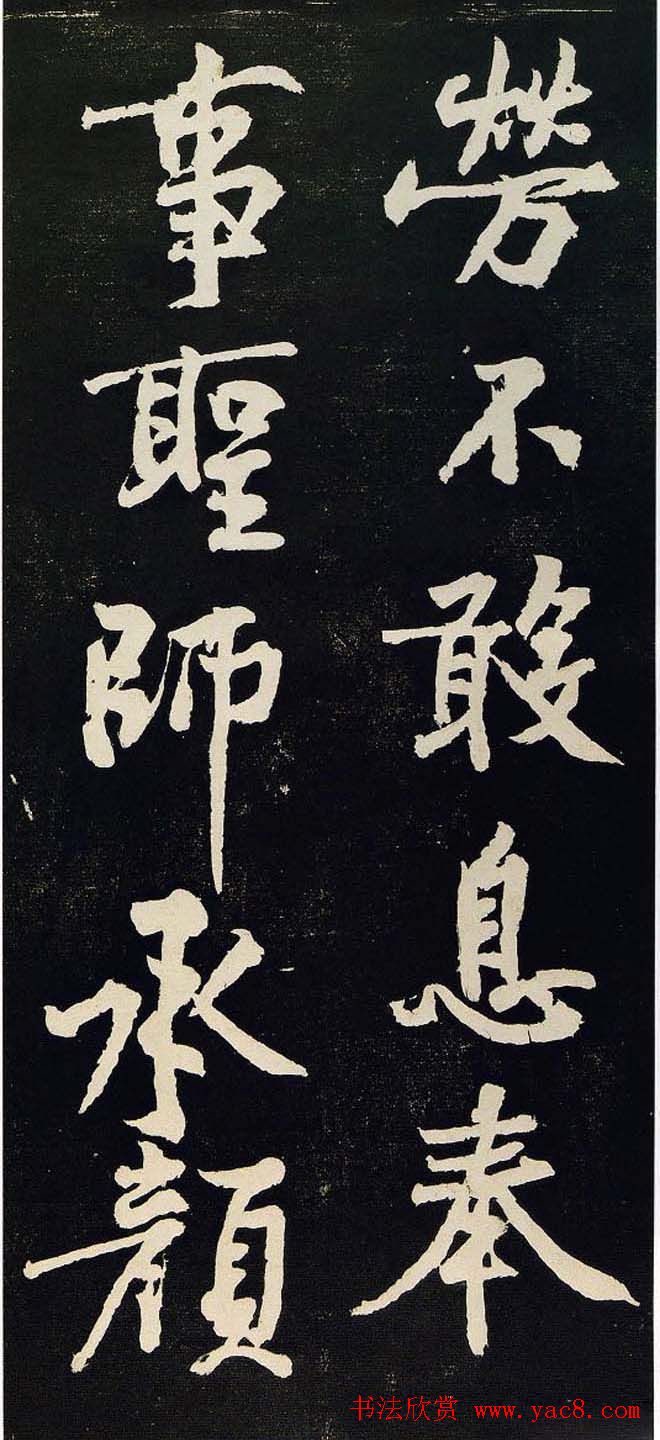 勞不敢息奉
事聖師承顏
书法欣赏 www.yac8.com